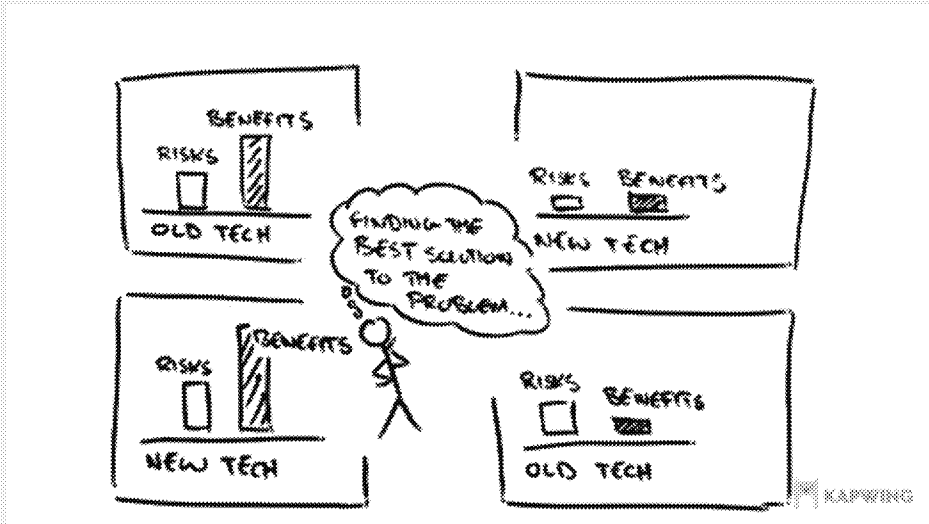 BENEFITS
RISKS
OLD TECH
RISKS BENEFITS
NEW TECH
FINDING THE
BEST SOLUTION
TO THE
PROBLEM...
BENEFITS
RISKS
NEW TECH
RISKS
BENEFITS
OLD TECH
KAPWING